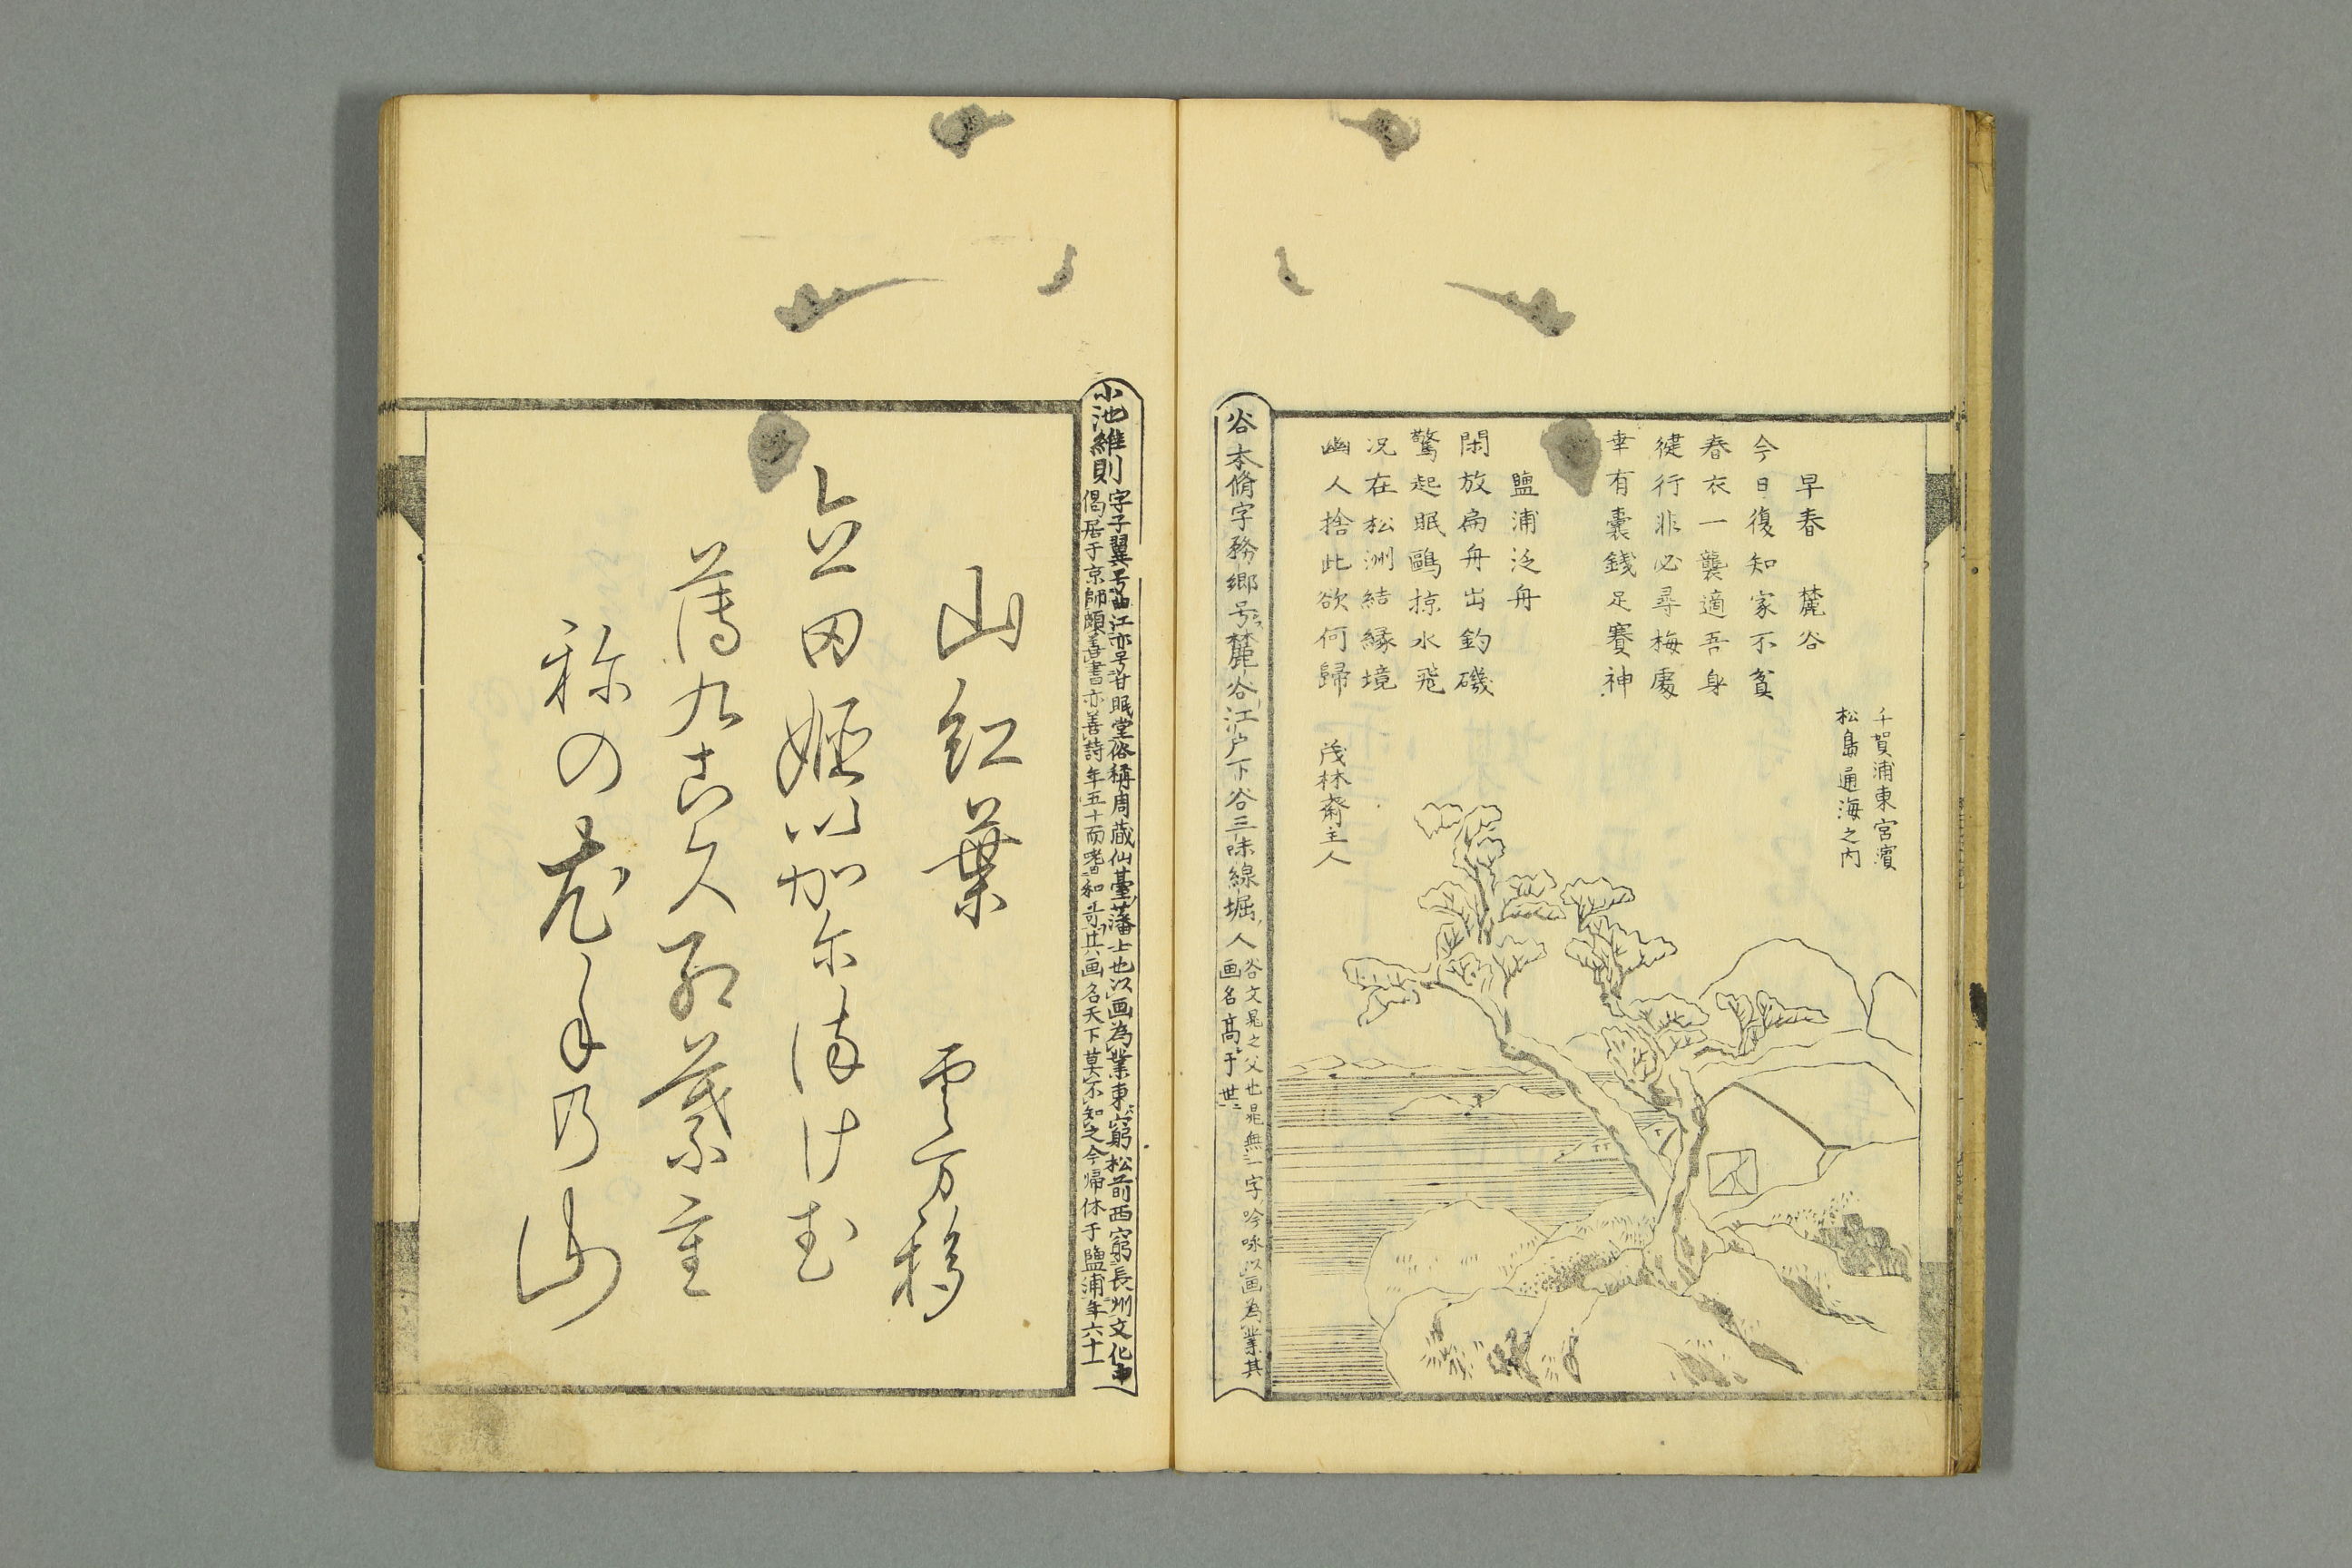 千賀浦東宮濱
松島通海之内
早春　麓谷
今日復知家不貧
春衣一襲適吾身
徤行非必尋梅處
幸有囊錢足賽神
鹽浦泛舟
閑放扁舟出釣磯
驚起眠鷗掠水飛
况在松洲結緣境
幽人捨此欲何歸
茂林齋主人
谷本脩字務鄉号麓谷江户下谷三味線堀人
谷文晁之父也晁無一字吟咏以画為業其
画名高于世
小池維則
字子翼号曲江亦号君眠堂俗稱周蔵仙臺藩士也以画為業東窮松前西窮長州文化中
偈居于京師頗善書亦善詩年五十而咾和哥其画名天下莫不知之今帰休于鹽浦年六十一
山紅葉
立田姫以加尓
薄九古久紅葉重
称の
乃